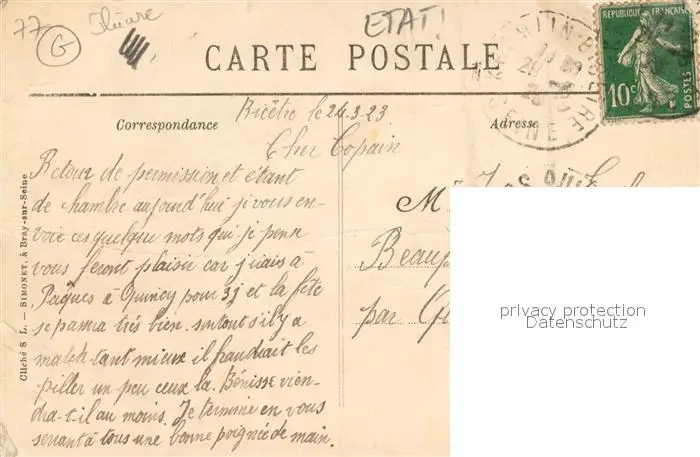 77
G
ETAT!
CARTE POSTALE
RÉPUBLIQUE FRANÇAISE
10c
POSTES
Correspondance
Adresse
Bicêtre le 24.3.23
Cher Copain
Retour de permission et étant
de chambre aujourd'hui je vous en-
voie ces quelque mots qui je pense
vous feront plaisir car j'irais à
Pâques à Quincy pour 3j et la fête
se passera très bien surtout s'il y a
match tant mieux il faudrait les
piller un peu ceux la. Bénisse vien-
dra-t-il au moins. Je termine en vous
serrant à tous une bonne poignée de main.
M
Beaup
par Qu
Cliché S L. — SIMONET, à Bray-sur-Seine
privacy protection
Datenschutz